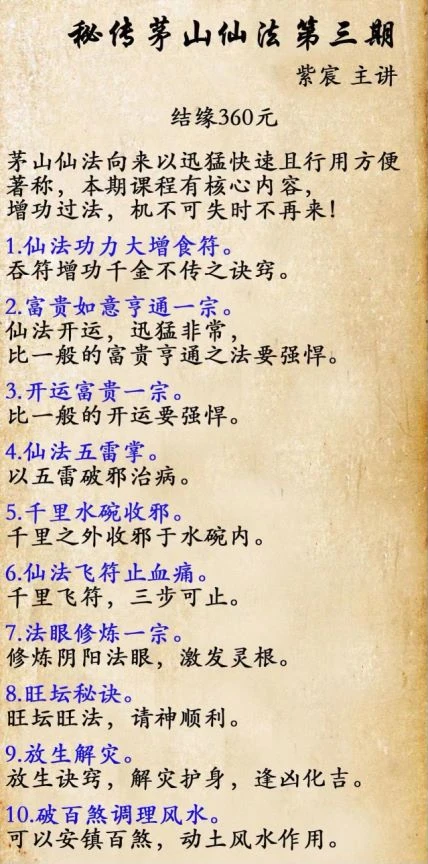 秘传茅山仙法第三期
紫宸 主讲
结缘360元
茅山仙法向来以迅猛快速且行用方便
著称，本期课程有核心内容，
增功过法，机不可失时不再来！
1.仙法功力大增食符。
吞符增功千金不传之诀窍。
2.富贵如意亨通一宗。
仙法开运，迅猛非常，
比一般的富贵亨通之法要强悍。
3.开运富贵一宗。
比一般的开运要强悍。
4.仙法五雷掌。
以五雷破邪治病。
5.千里水碗收邪。
千里之外收邪于水碗内。
6.仙法飞符止血痛。
千里飞符，三步可止。
7.法眼修炼一宗。
修炼阴阳法眼，激发灵根。
8.旺坛秘诀。
旺坛旺法，请神顺利。
9.放生解灾。
放生诀窍，解灾护身，逢凶化吉。
10.破百煞调理风水。
可以安镇百煞，动土风水作用。